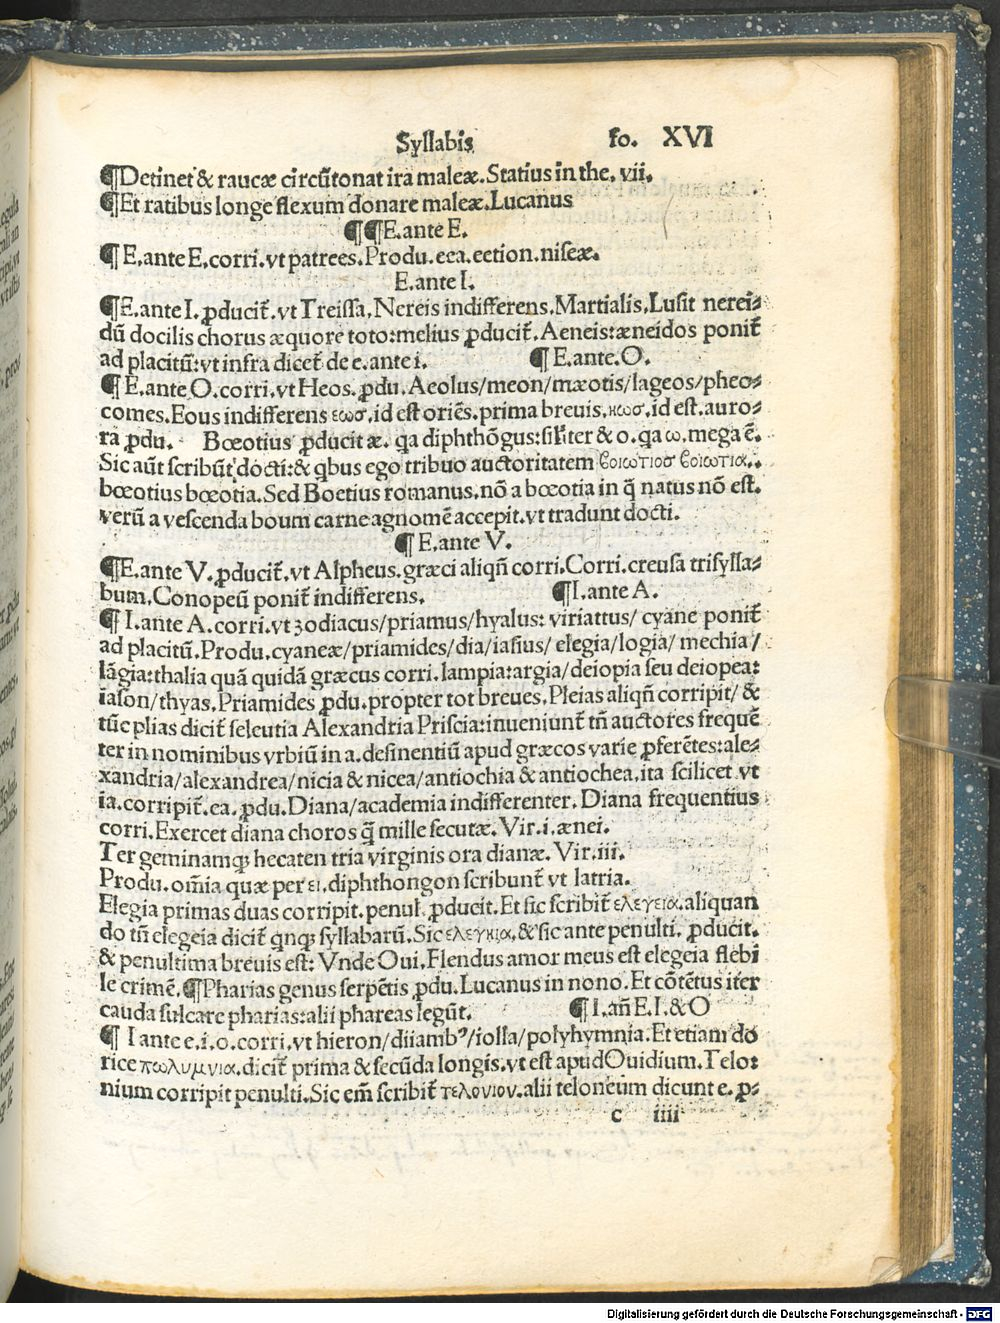 Syllabis fo. XVI
¶Detinet & raucæ circũtonat ira maleæ. Statius in the. vii.
¶Et ratibus longe flexum donare maleæ. Lucanus
¶¶E.ante E.
¶ E.ante E.corri.vt patrees. Produ. eea.eetion.niseæ.
E.ante I.
¶E.ante I. ꝓducit̃. vt Treissa. Nereis indifferens. Martialis. Lusit nerei⸗
dũ docilis chorus æquore toto:melius ꝓducit̃. Aeneis:æneidos ponit̃
ad placitũ:vt infra dicet̃ de e.ante i. ¶ E.ante.O.
¶ E.ante O.corri.vt Heos. ꝓdu. Aeolus/meon/mæotis/lageos/pheo⸗
comes. Eous indifferens εωσ.id est oriẽs.prima breuis.ηωσ.id est.auro⸗
ra ꝓdu. Bœotius ꝓducit æ. qa diphthõgus:silr̃iter & o.qa ω.mega ẽ.
Sic aũt scribũt docti:& qbus ego tribuo auctoritatem βοιωτιοσ βοιωτια..
bœotius bœotia. Sed Boetius romanus.nõ a bœotia in q̃ natus nõ est.
verũ a vescenda boum carne agnomẽ accepit.vt tradunt docti.
¶ E.ante V.
¶E.ante V. ꝓducit̃. vt Alpheus.græci aliqñ corri. Corri.creusa trisylla⸗
bum. Conopeũ ponit̃ indifferens. ¶I.ante A.
¶ I.ante A.corri.vt zodiacus/priamus/hyalus: viriattus/ cyane ponit̃
ad placitũ. Produ.cyaneæ/priamides/dia/iasius/ elegia/logia/ mechia/
lãgia:thalia quã quidã græcus corri.lampia:argia/deiopia seu deiopea:
iason/thyas. Priamides ꝓdu.propter tot breues. Pleias aliqñ corripit/ &
tũc plias dicit̃ seleutia Alexandria Priscia:inueniunt̃ tñ auctores frequẽ
ter in nominibus vrbiũ in a.desinentiũ apud græcos varie ꝓferẽtes:ale⸗
xandria/alexandrea/nicia & nicea/antiochia & antiochea.ita scilicet vt
ia.corripit̃.ea.ꝓdu. Diana/academia indifferenter. Diana frequentius
corri. Exercet diana choros q̃ mille secutæ. Vir.i.ænei.
Ter geminamqꝫ hecaten tria virginis ora dianæ. Vir.iii.
Produ.om̃ia quæ per ει.diphthongon scribunt̃ vt latria.
Elegia primas duas corripit.penul.ꝓducit. Et sic scribit̃ ελεγεια.aliquan
do tñ elegeia dicit̃ qnqꝫ syllabarũ. Sic ελεγηια.& sic ante penulti. ꝓducit.
& penultima breuis est: Vnde Oui. Flendus amor meus est elegeia flebi
le crimẽ. ¶Pharias genus serpẽtis ꝓdu. Lucanus in nono. Et cõtẽtus iter
cauda sulcare pharias:alii phareas legũt. ¶ I.añ E.I.& O
¶ I ante e.i.o.corri.vt hieron/diiambꝰ/iolla/polyhymnia. Et etiam do
rice πωλυμνια.dicit̃ prima & secũda longis.vt est apud Ouidium. Telo⸗
nium corripit penulti. Sic em̃ scribit̃ τελονιον.alii teloneum dicunt e. ꝓ⸗
c iiii
Digitalisierung gefördert durch die Deutsche Forschungsgemeinschaft - DFG